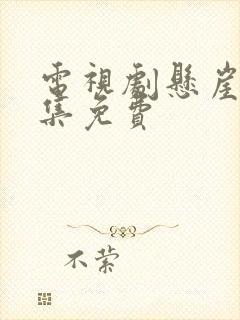 電視劇懸崖
集免費
不縈